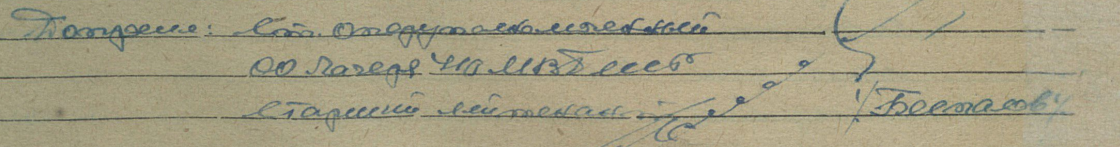 Допросил: Ст. Оперуполномоченный
ОО Лагеря МВД
Старший лейтенант /Беспалов/